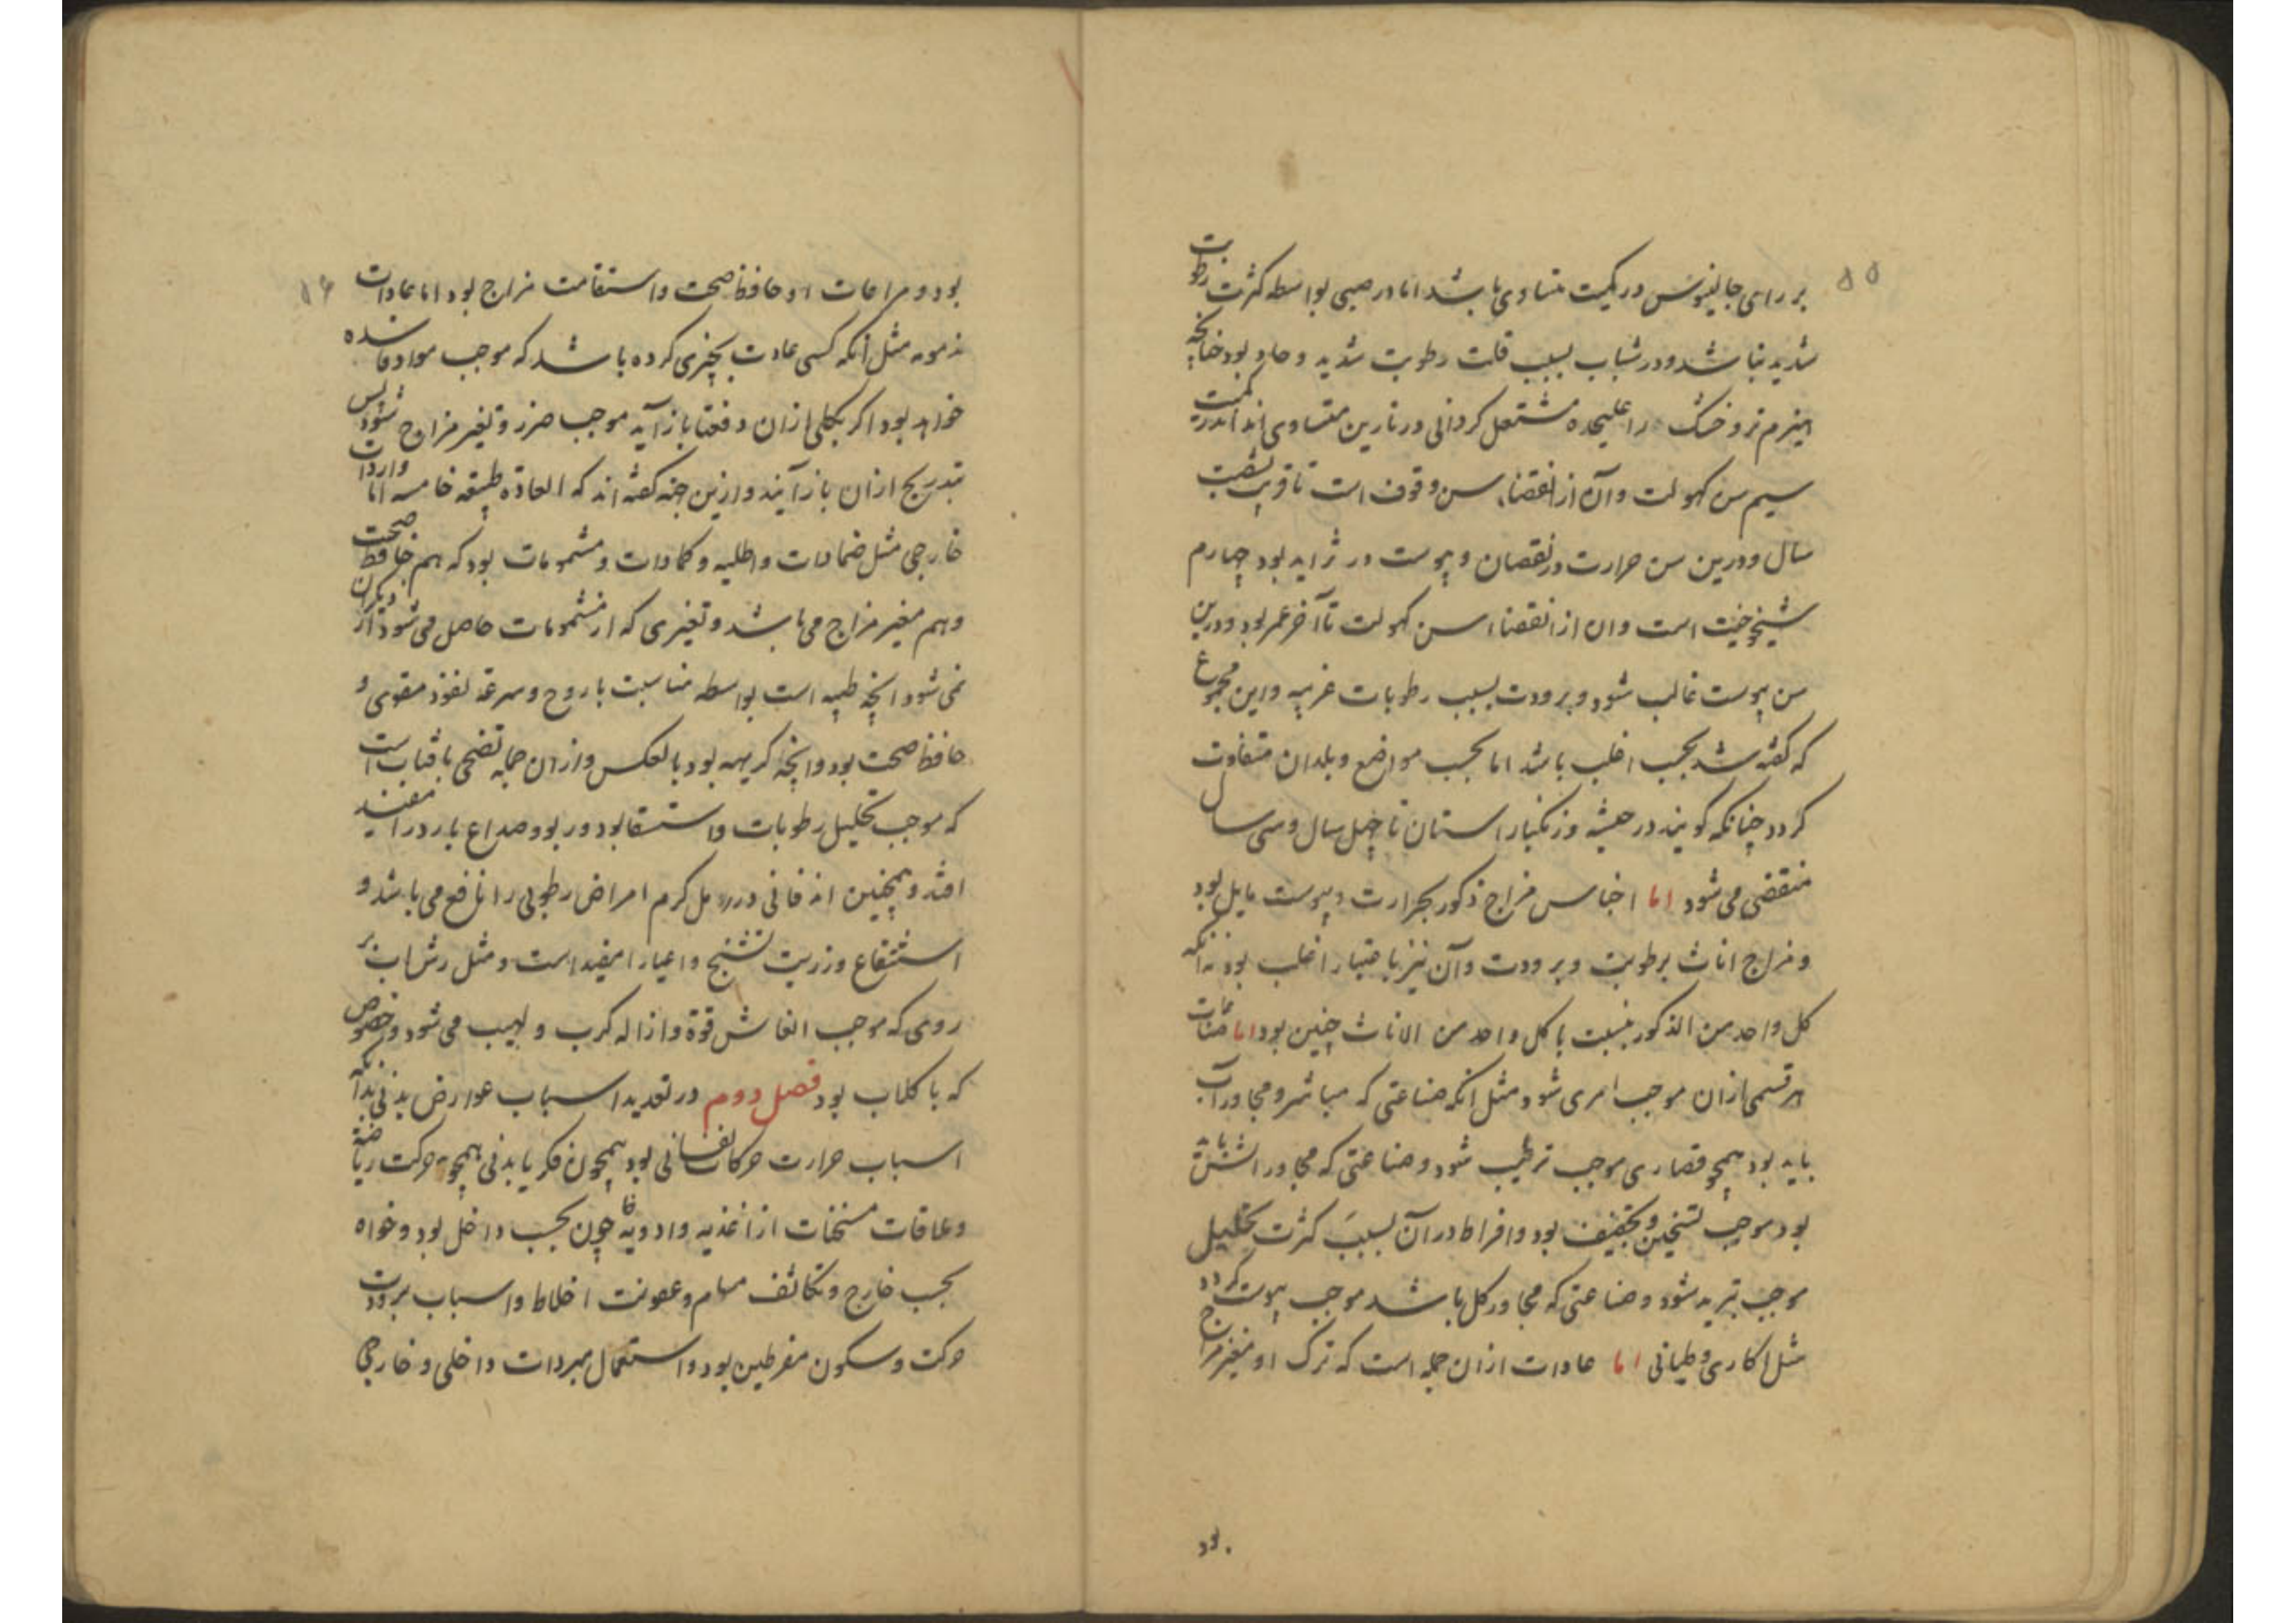 ۵۵
بر رای جالینوس در کمیت متساوی باشد اما در صبی بواسطه کثرت رطوبت
شدید نباشد و در شباب بسبب قلت رطوبت شدید و حاد بود چنانچه
هیزم تر و خشک را علیحده مشتعل کردانی در نارین متساوی اند اندر کمیت
سیم سن کهولت و آن از انقضاء سن وقوف است تا قریب شصت
سال و درین سن حرارت در نقصان و یبوست در تزاید بود چهارم
شیخوخیت است و ان از انقضاء سن کهولت تا آخر عمر بود و درین
سن یبوست غالب شود و برودت بسبب رطوبات غریبه و این مجموع
که کفته شد بحسب اغلب باشد اما بحسب مواضع و بلدان متفاوت
کردد چنانکه کویند در حبشه و زنکبار استان تا چهل سال و سی سال
منقضی می شود اما اجناس مزاج ذکور بحرارت و یبوست مایل بود
و مزاج اناث برطوبت و برودت و آن نیز باعتبار اغلب بود نه آنکه
کل واحد من الذکور بنسبت با کل واحد من الاناث چنین بود اما صناعات
هر قسمی ازان موجب امری شود مثل انکه صناعتی که مباشر و مجاور آب
باید بود همچو قصاری موجب ترطیب شود و صناعتی که مجاور اتش باید
بود موجب تسخین و تجفیف بود و افراط در آن بسبب کثرت تحلیل
موجب تبرید شود و صناعتی که مجاور کل باشد موجب یبوست کردد
مثل اکاری و طیانی اما عادات ازان جمله است که ترک او مغیر مزاج
بود
۵۶
بود و مراعات او حافظ صحت و استقامت مزاج بود اما عادات
مذمومه مثل انکه کسی عادت بچیزی کرده باشد که موجب مواد فاسده
خواهد بود اکر بکلی ازان دفعتا باز آید موجب ضرر و تغیر مزاج شود پس
بتدریج ازان باز آیند و ازین جهة کفته اند که العادة طبیعه خامسه اما واردات
خارجی مثل ضمادات و اطلیه و کمادات و مشمومات بود که هم حافظ صحت
و هم مغیر مزاج می باشد و تغیری که از مشمومات حاصل می شود از دیکران
نمی شود انچه طیبه است بواسطه مناسبت با روح و سرعة نفوذ مقوی و
حافظ صحت بود و انچه کریهه بود بالعکس و ازان جمله تضحی بافتاب است
که موجب تحلیل رطوبات و استسقا بود و ربو و صداع بارد را مفید
افتد و همچنین اندفانی در رمل کرم امراض رطوبی را نافع می باشد و
استنقاع در زیت تشنج و اعیا را مفید است و مثل رش اب بر
روی که موجب انعاش قوة و ازاله کرب و لهیب می شود و خصوص
که با کلاب بود فصل دوم در تعدید اسباب عوارض بدنی بدآنکه
اسباب حرارت حرکات نفسانی بود همچون فکر یا بدنی همچو حرکت ریاضة
و ملاقات مسخنات از اغذیه و ادویه خواه چون بحسب داخل بود و خواه
بحسب خارج و تکاثف مسام و عفونت اخلاط و اسباب برودت
حرکت و سکون مفرطین بود و استعمال مبردات داخلی و خارجی